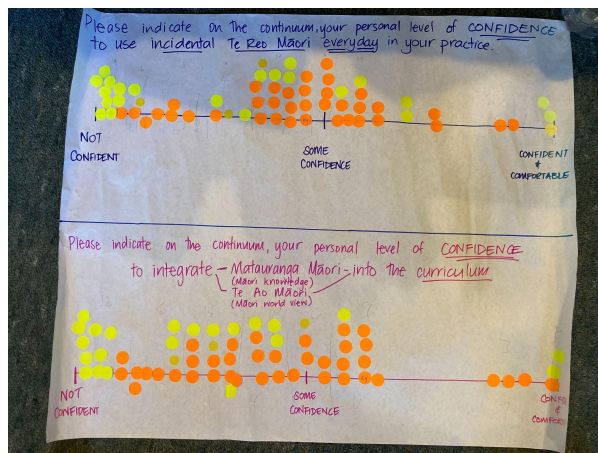 Please indicate on the continuum, your personal level of CONFIDENCE
to use incidental Te Reo Māori everyday in your practice.
NOT
CONFIDENT
SOME
CONFIDENCE
CONFIDENT
&
COMFORTABLE
Please indicate on the continuum, your personal level of CONFIDENCE
to integrate - Matauranga Māori - into the curriculum
(Māori knowledge)
Te Ao Māori
(Māori world view)
NOT
CONFIDENT
SOME
CONFIDENCE
CONF
&
COMFOR